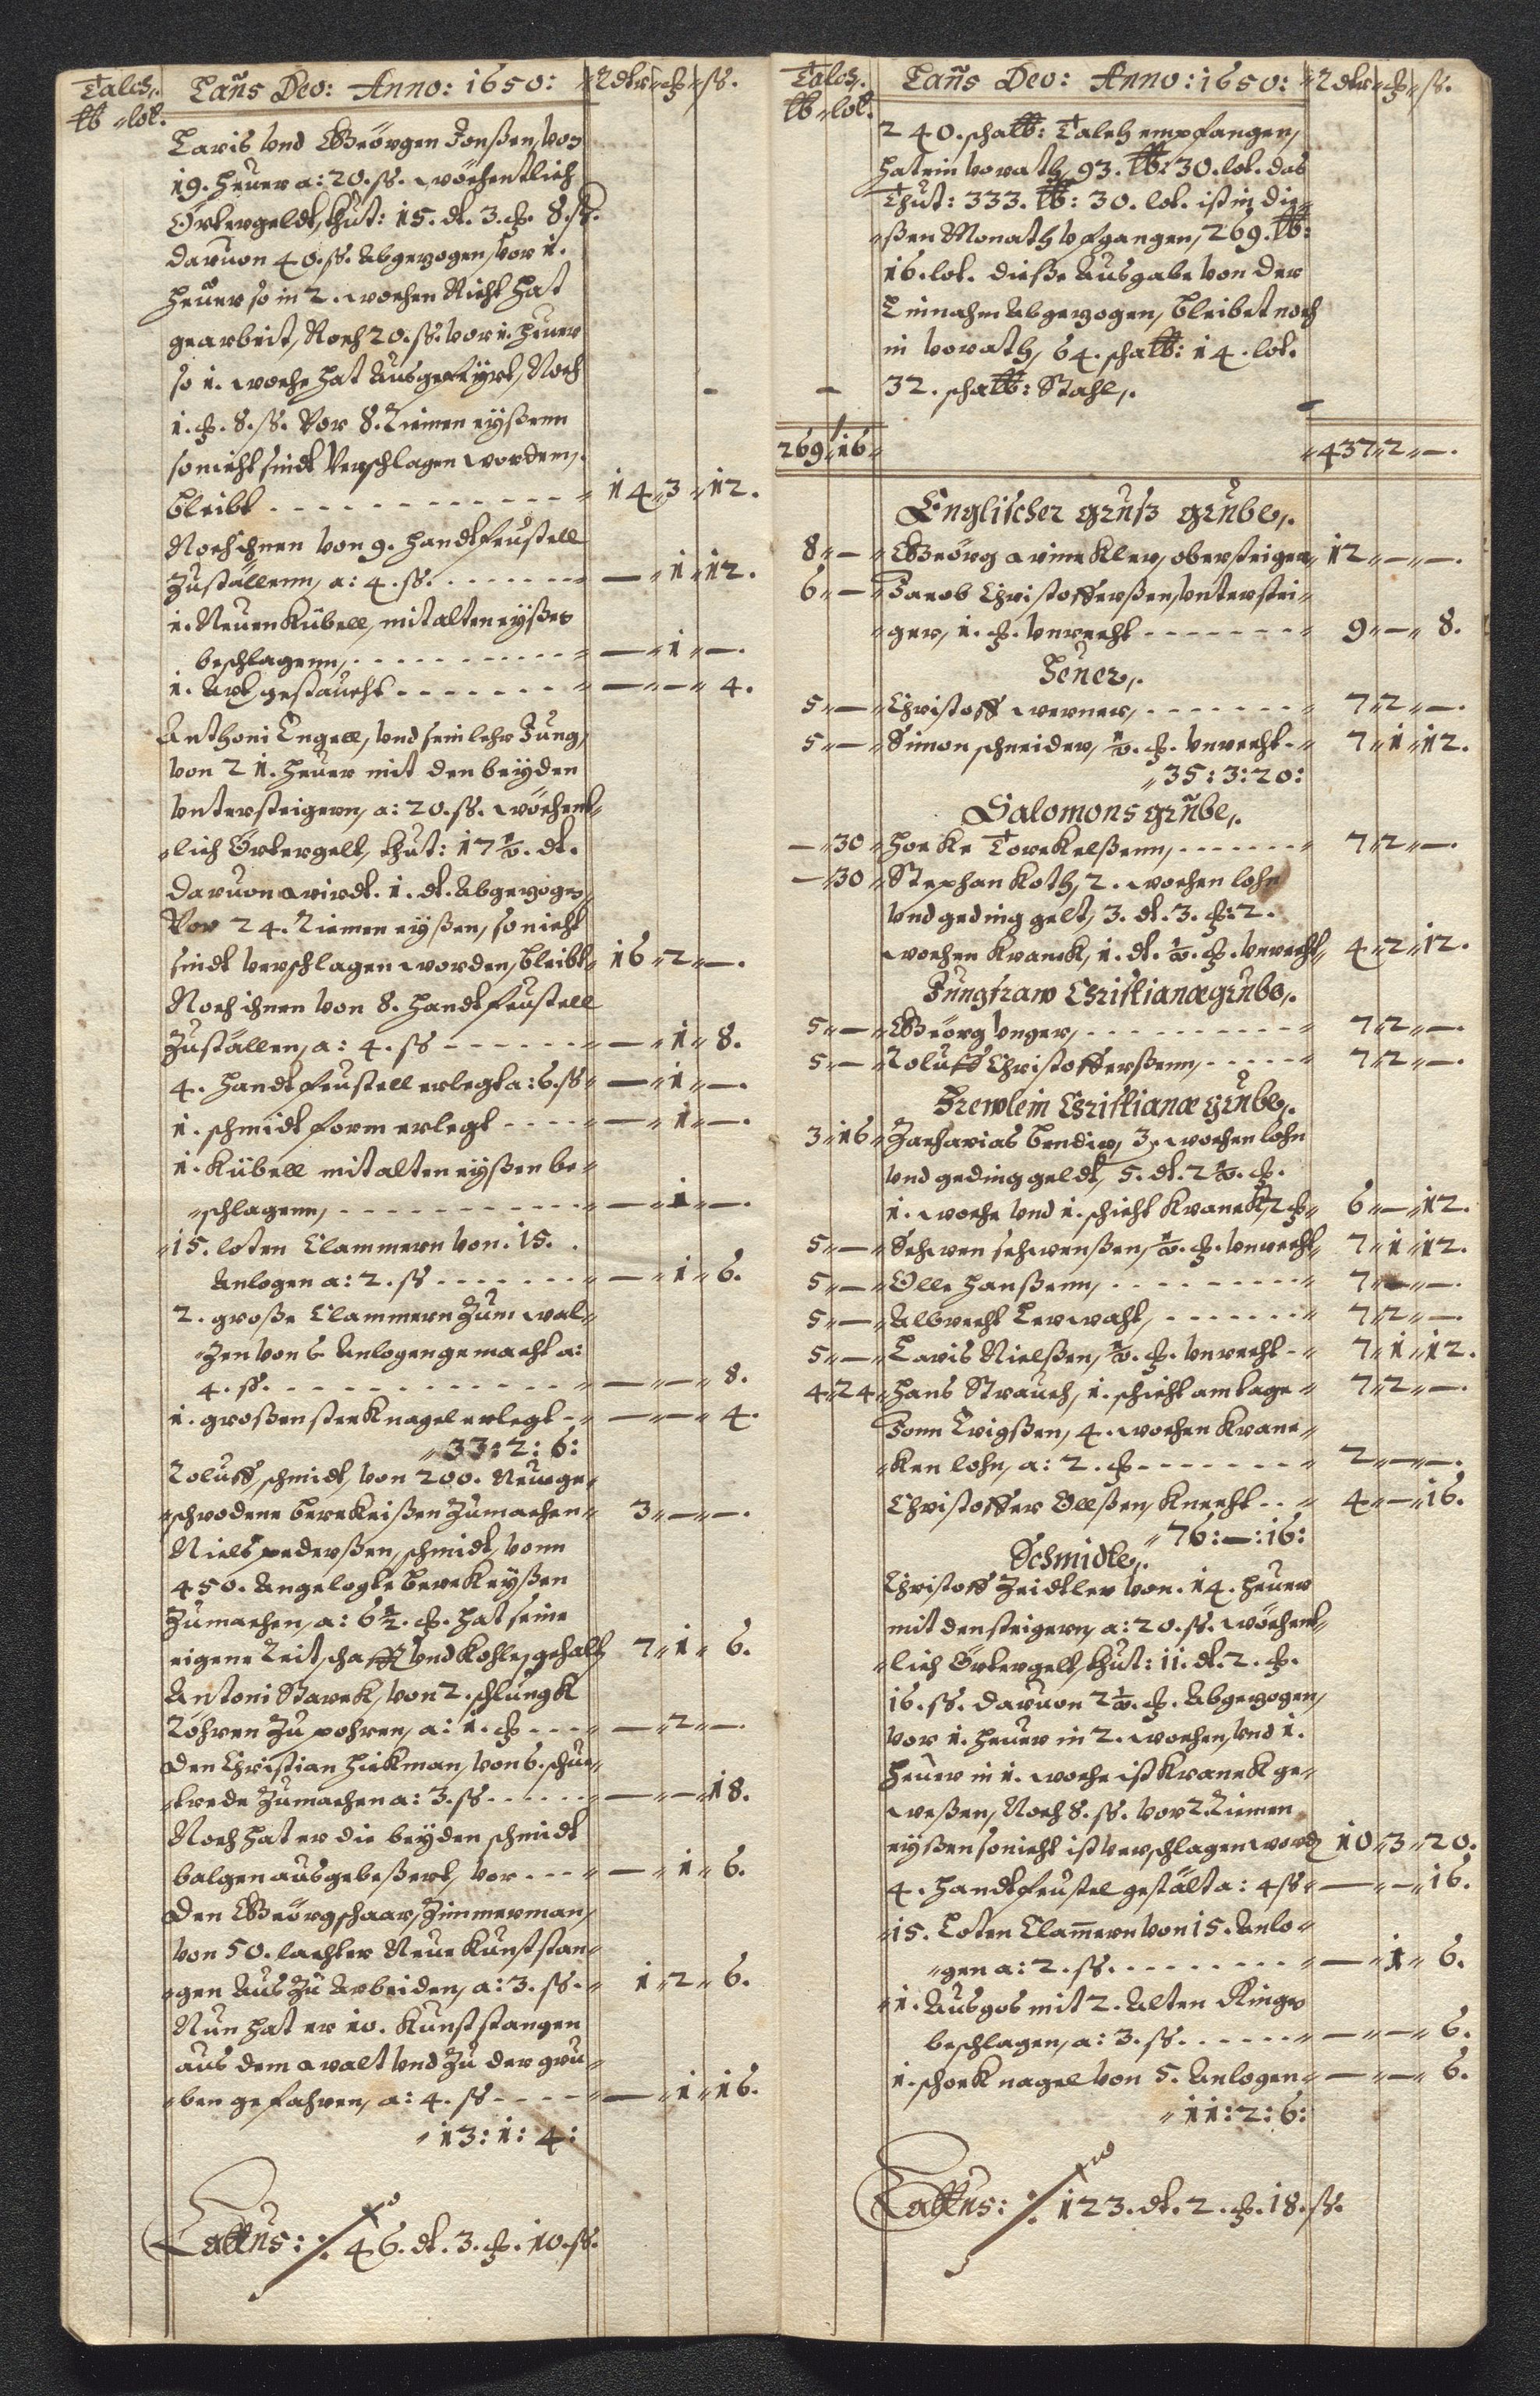 Talch,. Laus Deo: Anno: 1650: Rdtr ₰ ß.
℔ lot.
Laris Vnd Geörgen Jonßen, Von
19. heuer a: 20. ß. wöchentlich
Örtergeldt, thut: 15. dt. 3. ₰. 8. ß.
Daruon 40. ß. Abgezogen, Vor 1.
heuer so in 2. wochen Nicht hat
gearbeit, Noch 20. ß. Vor 1. heuer
so 1. woche hat Ausgefeÿrt, Noch
1. ₰. 8. ß. Vor 8. Riemen eÿßenn
so nicht sindt Verschlagen worden,.
bleibt - - - 14 3 12.
Noch ihnen Von 9. handtfeustell
Zuställenn, a: 4. ß. - - - — 1 12.
1. Neuen Kübell, mit alten eÿßen
beschlagenn, - - - — 1 —.
1. Axt gestaucht - - - — — 4.
Anthoni Engell, Vnd sein lehr Jung,
Von 21. heuer mit den beÿden
Vntersteigern, a: 20. ß. wöchent
lich Örtergelt, thut: 17 ½. dt.
Daruon wirdt. 1. dt. Abgezogen,
Vor 24. Riemen eÿßen, so nicht
sindt Verschlagen worden, bleibt 16 2 —.
Noch ihnen Von 8. handtfeustell
Zuställen, a: 4. ß - - - — 1 8.
4. handtfeustell erlegt a: 6. ß — 1 —.
1. schmidt form erlegt - - - — 1 —.
1. Kübell mit alten eÿßen be
schlagenn, - - - — 1 —.
15. loten Clammern Von. 15.
Anlogen a: 2. ß - - - — 1 6.
2. große Clammern Zum wal
Zen Von 6 Anlogen gemacht a:
4. ß. - - - — — 8.
1. großen steck nagel erlegt - — — 4.
33: 2: 6:
Roluff schmidt, Von 200. Neuge
schrodene berckeißen Zumachen 3 — —.
Niels pederßen, schmidt, Vonn
450. Angelogte berckeÿßen
Zumachen, a: 6½. ₰. hat seine
eigene Reitschafft Vnd kohlen gehalt 7 1 6.
Antoni Starck, Von 2. schlungk
Röhren Zu pohren, a: 1. ₰ - - - — 2 —.
Den Christian hickman, Von 6. schuu
brede Zumachen a: 3. ß - - - — — 18.
Noch hat er die beÿden schmidt
balgen ausgebeßert, Vor - - - — 1 6.
Den Geörg schaar, Zimmerman,
Von 50. lachter Neue Kunst stan
gen Aus Zu Arbeiden, a: 3. ß - 1 2 6.
Nun hat er 10. Kunst stangen
aus dem walt Vnd Zu der gru
ben gefahren, a: 4. ß - - - — 1 16.
13: 1: 4:
Lattus: ./. 46. dt. 3. ₰. 10. ß.
Talch,. Laus Deo: Anno: 1650: Rdtr ₰ ß.
℔ lot.
240. scha℔: Talch empfangen,
hat ein Vorath, 93. ℔: 30. lot. das
Thut: 333. ℔: 30. lot. ist in die
ßen Monath Vfgangen, 269. ℔:
16. lot. dieße Ausgabe Von der
Einnahm Abgezogen, bleibet noch
in Vorath, 64. scha℔: 14. lot.
32. scha℔: Stahl,.
269 16 437 2 —.
Englischer gruß grube,.
8 — Geörg winckler, obersteiger 12 — —.
6 — Jacob Christofferßen, Vnterstei
ger, 1. ₰. Vnrecht - - - 9 — 8.
Heuer,.
5 — Christoff werner, - - - 7 2 —.
5 — Simon schneider, ½. ₰. Vnrecht - 7 1 12.
35: 3: 20:
Salomons grube,.
— 30 hocke Torckelßenn, - - - 7 2 —.
— 30 Stephan Koth, 2. wochen lohn
Vnd geding gelt, 3. dt. 3. ₰: 2.
wochen kranck, 1. dt. ½. ₰. Vnrecht 4 2 12.
Jungfraw Christianæ grube,.
5 — Geörg Vnger, - - - 7 2 —.
5 — Roluff Christofferßenn, - - - 7 2 —.
Frewlein Christianæ grube,.
3 16 Zacharias bendix, 3. wochen lohn
Vnd geding geldt, 5. dt. 2½. ₰.
1. woche Vnd 1. schicht kranck, 2 ₰ 6 — 12.
5 — Sehwen sehwenßen, ½. ₰. Vnrecht 7 1 12.
5 — Olle hanßenn, - - - 7 — —.
5 — Albrecht Lerwaht, - - - 7 2 —.
5 — Laris Nielßen, ½. ₰. Vnrecht - 7 1 12.
4 24 hans Strauch, 1. schicht am tage 7 2 —.
Jonn Erigßen, 4. wochen kranc
ken lohn, a: 2. ₰ - - - 2 — —.
Christoffer Ollßen, knecht - - 4 — 16.
76: —: 16:
Schmidte,.
Christoff Zeidtler Von. 14. heuer
mit den steigern, a: 20. ß. wöchent
lich Örtergelt, thut: 11. dt. 2. ₰.
16. ß. daruon 2½. ₰. Abgezogen,
Vor 1. heuer in 2. wochen, Vnd 1.
heuer in 1. woche ist kranck ge
weßen, Noch 8. ß. Vor 2. Riemen
eÿßen so nicht ist Verschlagen word 10 3 20.
4. handtfeustel gestält a: 4 ß — — 16.
15. Loten Clam̅ern Von 15. Anlo
gen a: 2. ß. - - - — 1 6.
1. Ausgos mit 2. Alten Ringen
beschlagen, a: 3. ß. - - - — — 6.
1. schock nagel Von 5. Anlogen — — 6.
11: 2: 6:
Lattus: ./. 123. dt. 2. ₰. 18. ß.